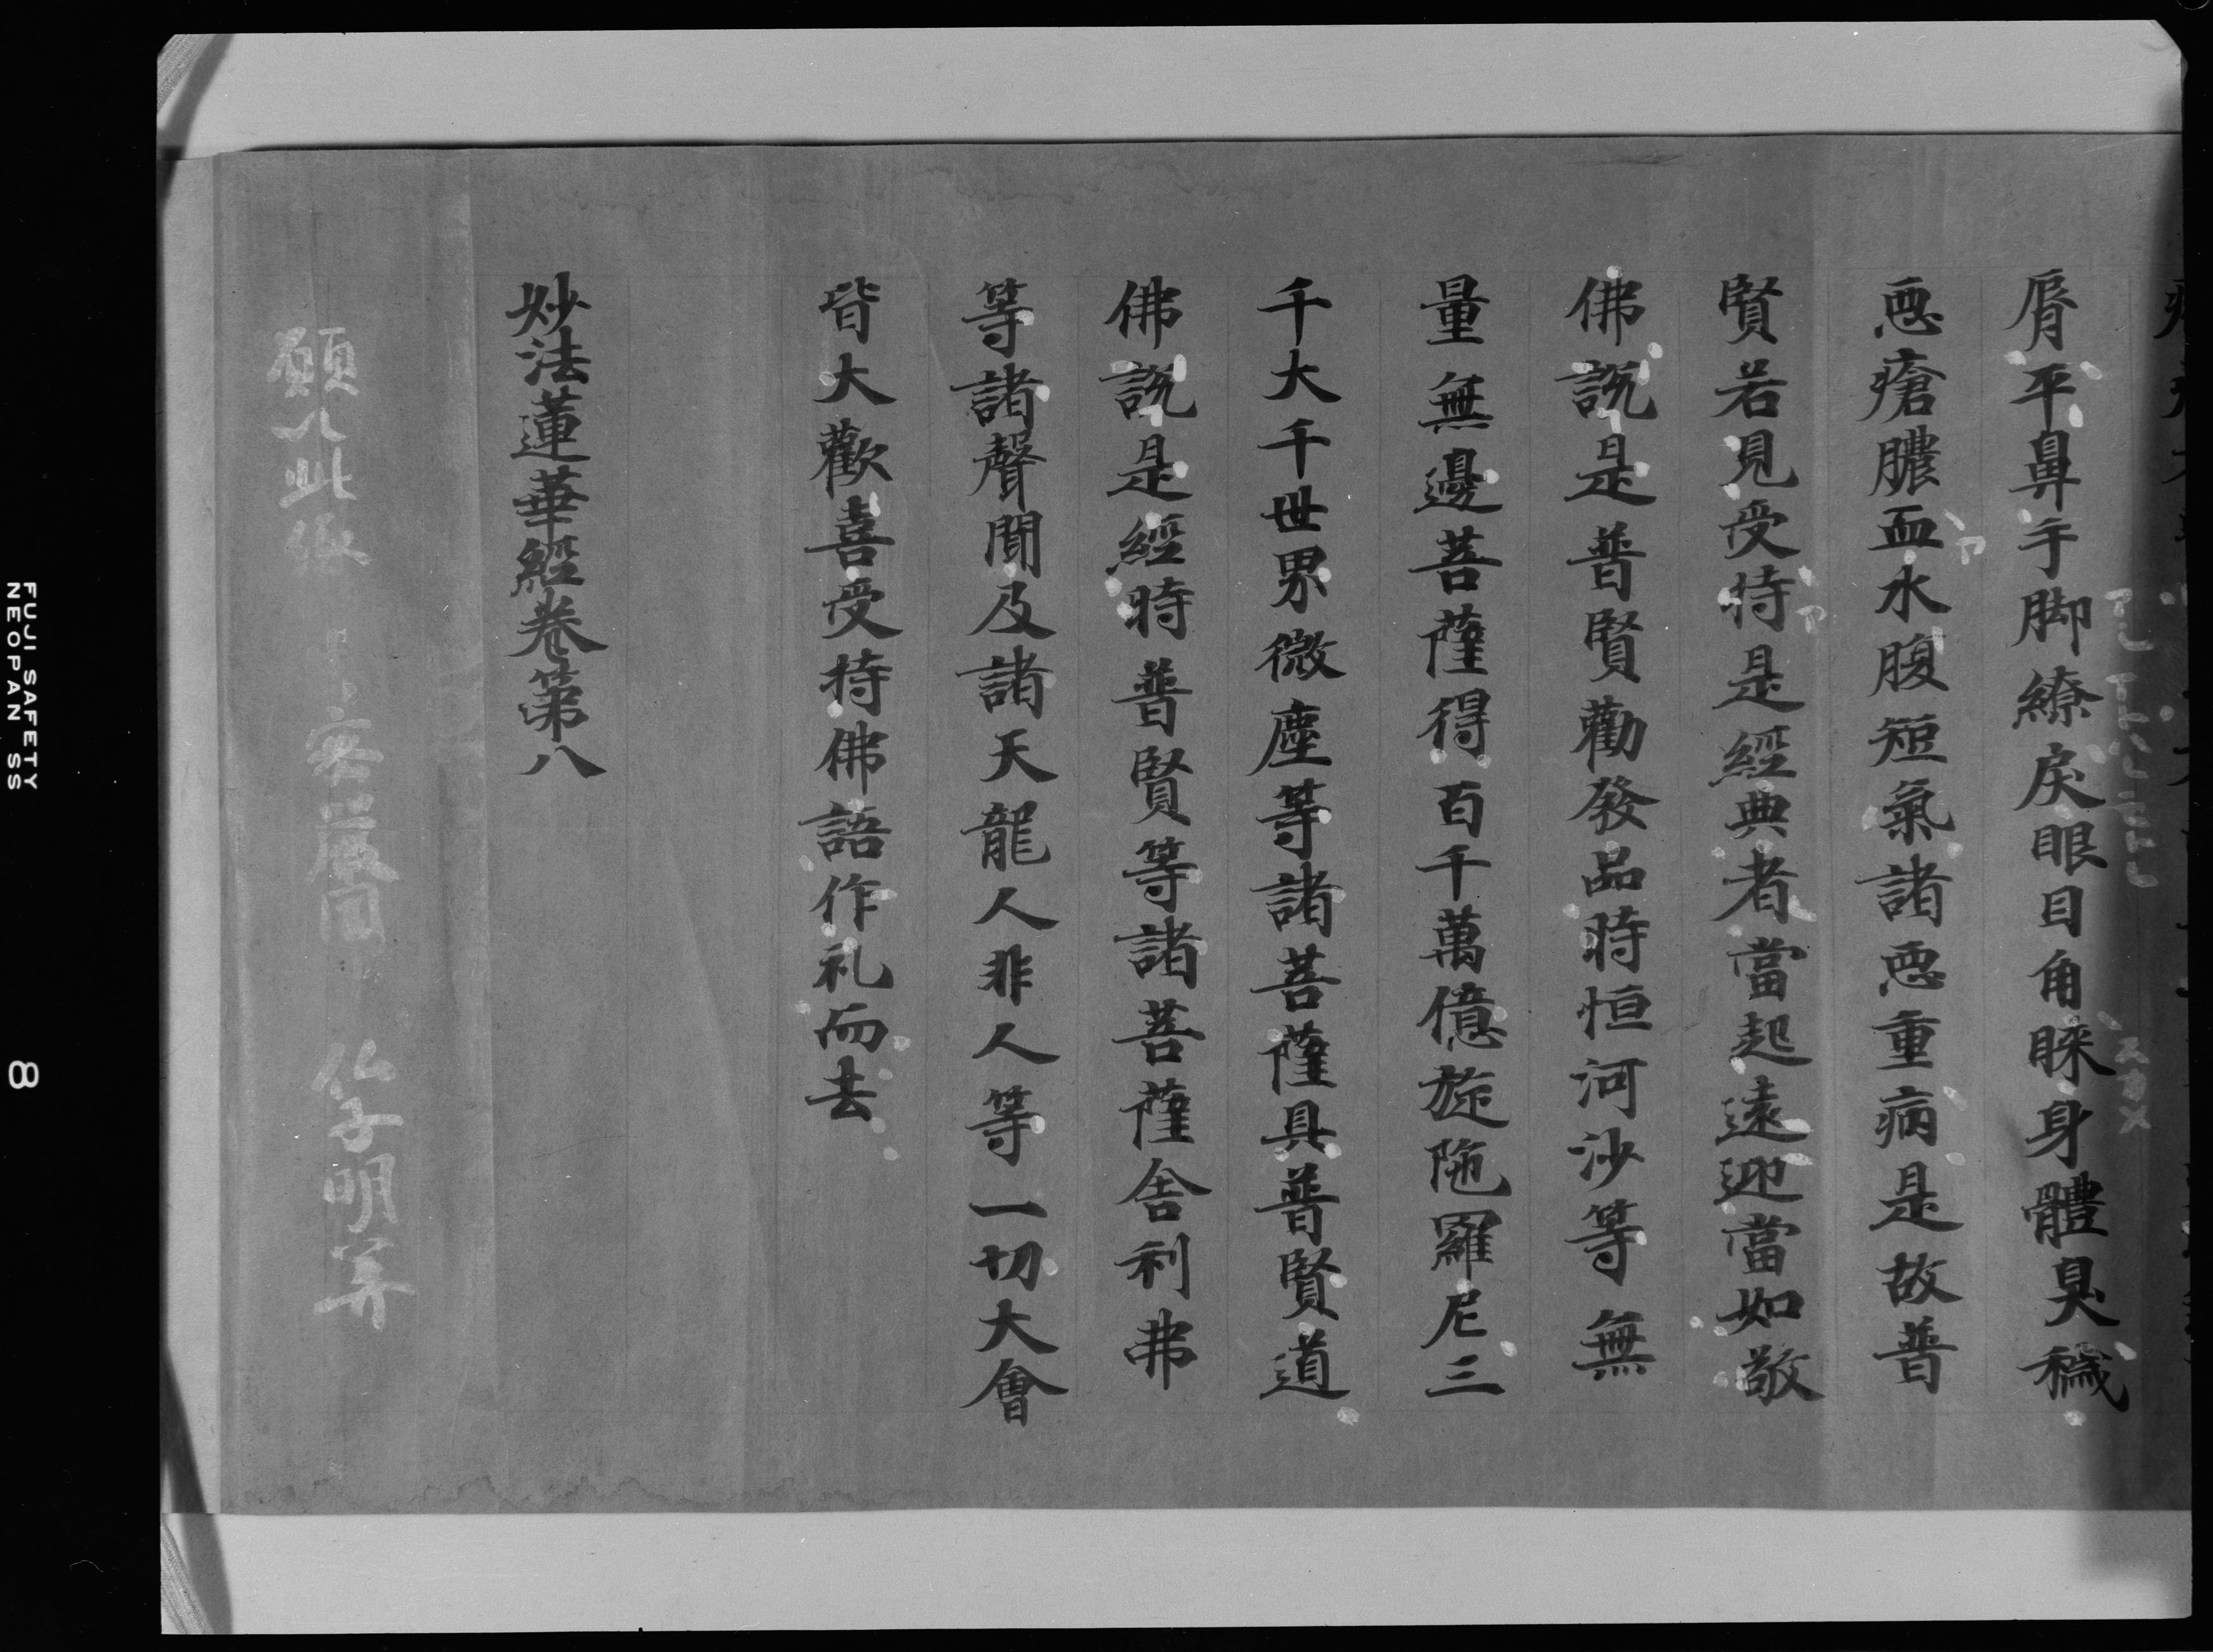 脣平鼻手脚繚戾眼目角睞身體臭穢
惡瘡膿血水腹短氣諸惡重病是故普
賢若見受持是經典者當起遠迎當如敬
佛說是普賢勸發品時恒河沙等無
量無邊菩薩得百千萬億旋陁羅尼三
千大千世界微塵等諸菩薩具普賢道
佛說是經時普賢等諸菩薩舍利弗
等諸聲聞及諸天龍人非人等一切大會
皆大歡喜受持佛語作礼而去
妙法蓮華經卷第八
願以此
仏子明筭
FUJI SAFETY
NEOPAN SS
8